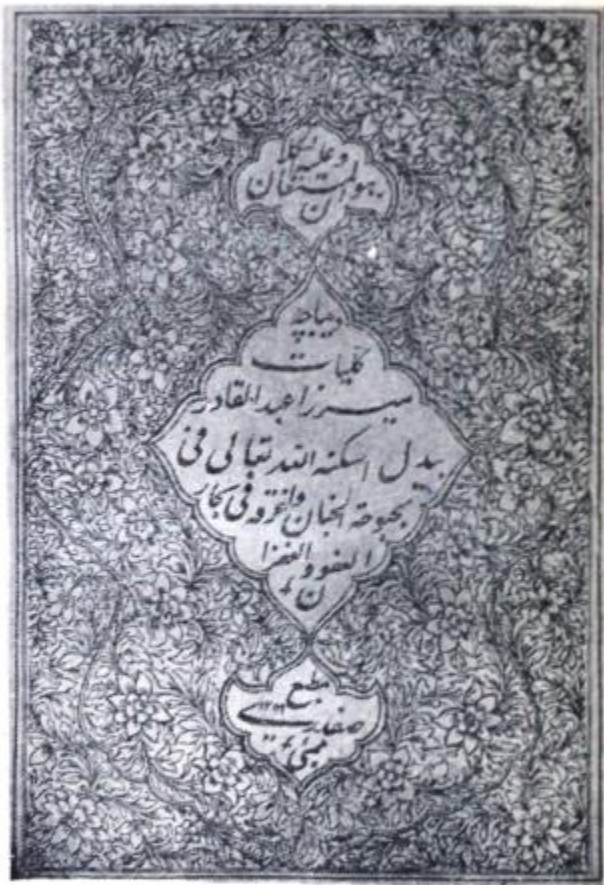 هو المستعان
وعلیه التکلان
دیباچه
کلیات
میرزا عبدالقادر
بیدل اسکنه الله تعالی فی
بحبوحة الجنان واغرقه فی بحار
العفو والغفران
مطبع
صفدری
بمبئی